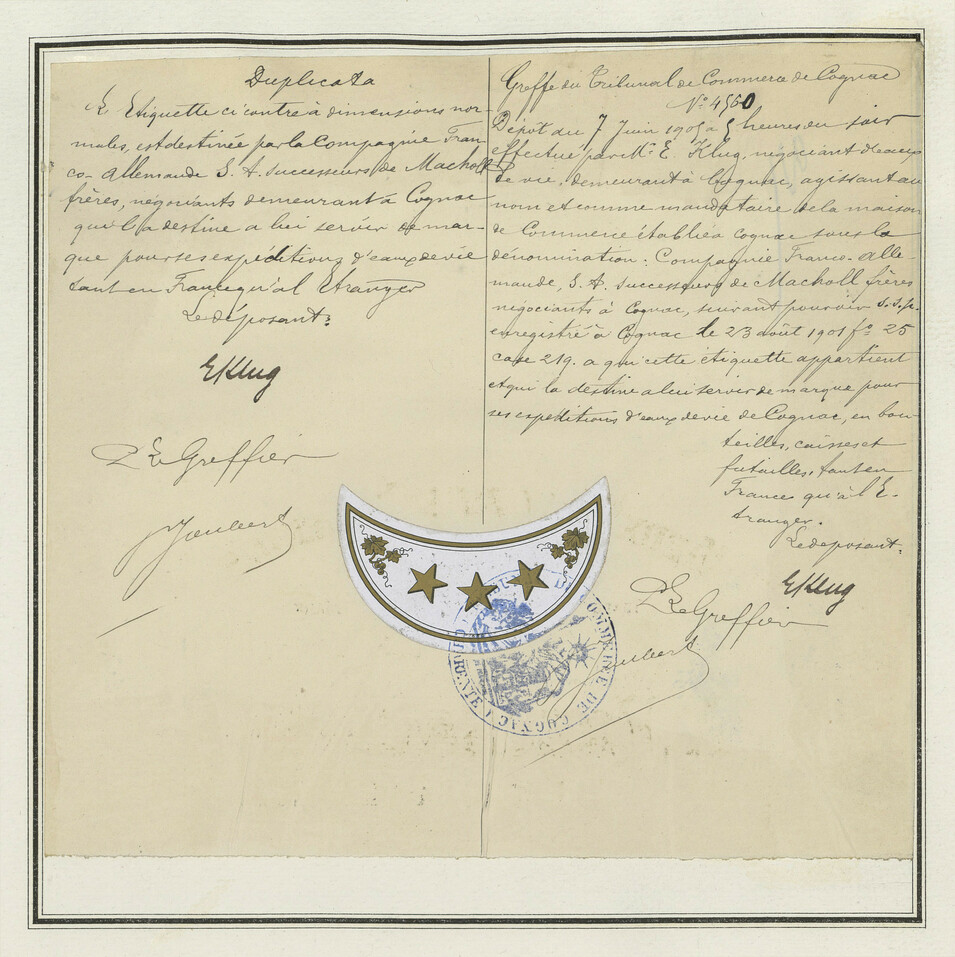 Duplicata
L'Etiquette ci contre à dimensions nor-
males, est destinée par la Compagnie Fran-
co-Allemande S. A. successeurs de Macholl
frères, négociants demeurant à Cognac
qui la destine a lui servir de mar-
que pour ses expéditions d'eaux de vie
tant en France qu'à l'Etranger
Le déposant:
EKlug
Le Greffier
Joubert
Greffe du Tribunal de Commerce de Cognac
No 4560
Dépôt du 7 Juin 1905 à 5 heures du soir
effectué par Mr. E. Klug, négociant d'eaux
de vie, demeurant à Cognac, agissant au
nom et comme mandataire de la maison
de Commerce établie à Cognac sous la
dénomination: Compagnie Franco-Alle-
mande, S. A. successeurs de Macholl frères
négociants à Cognac, suivant pouvoir s.s.p.
enregistré à Cognac le 23 août 1901 fo 25
case 219. a qui cette étiquette appartient
et qui la destine a lui servir de marque pour
ses expéditions d'eaux de vie de Cognac, en bou-
teilles, caisses et
futailles, tant en
France qu'à l'E-
tranger.
Le déposant:
EKlug
Le Greffier
Joubert
COMMERCE DE COGNAC
CHARENTE